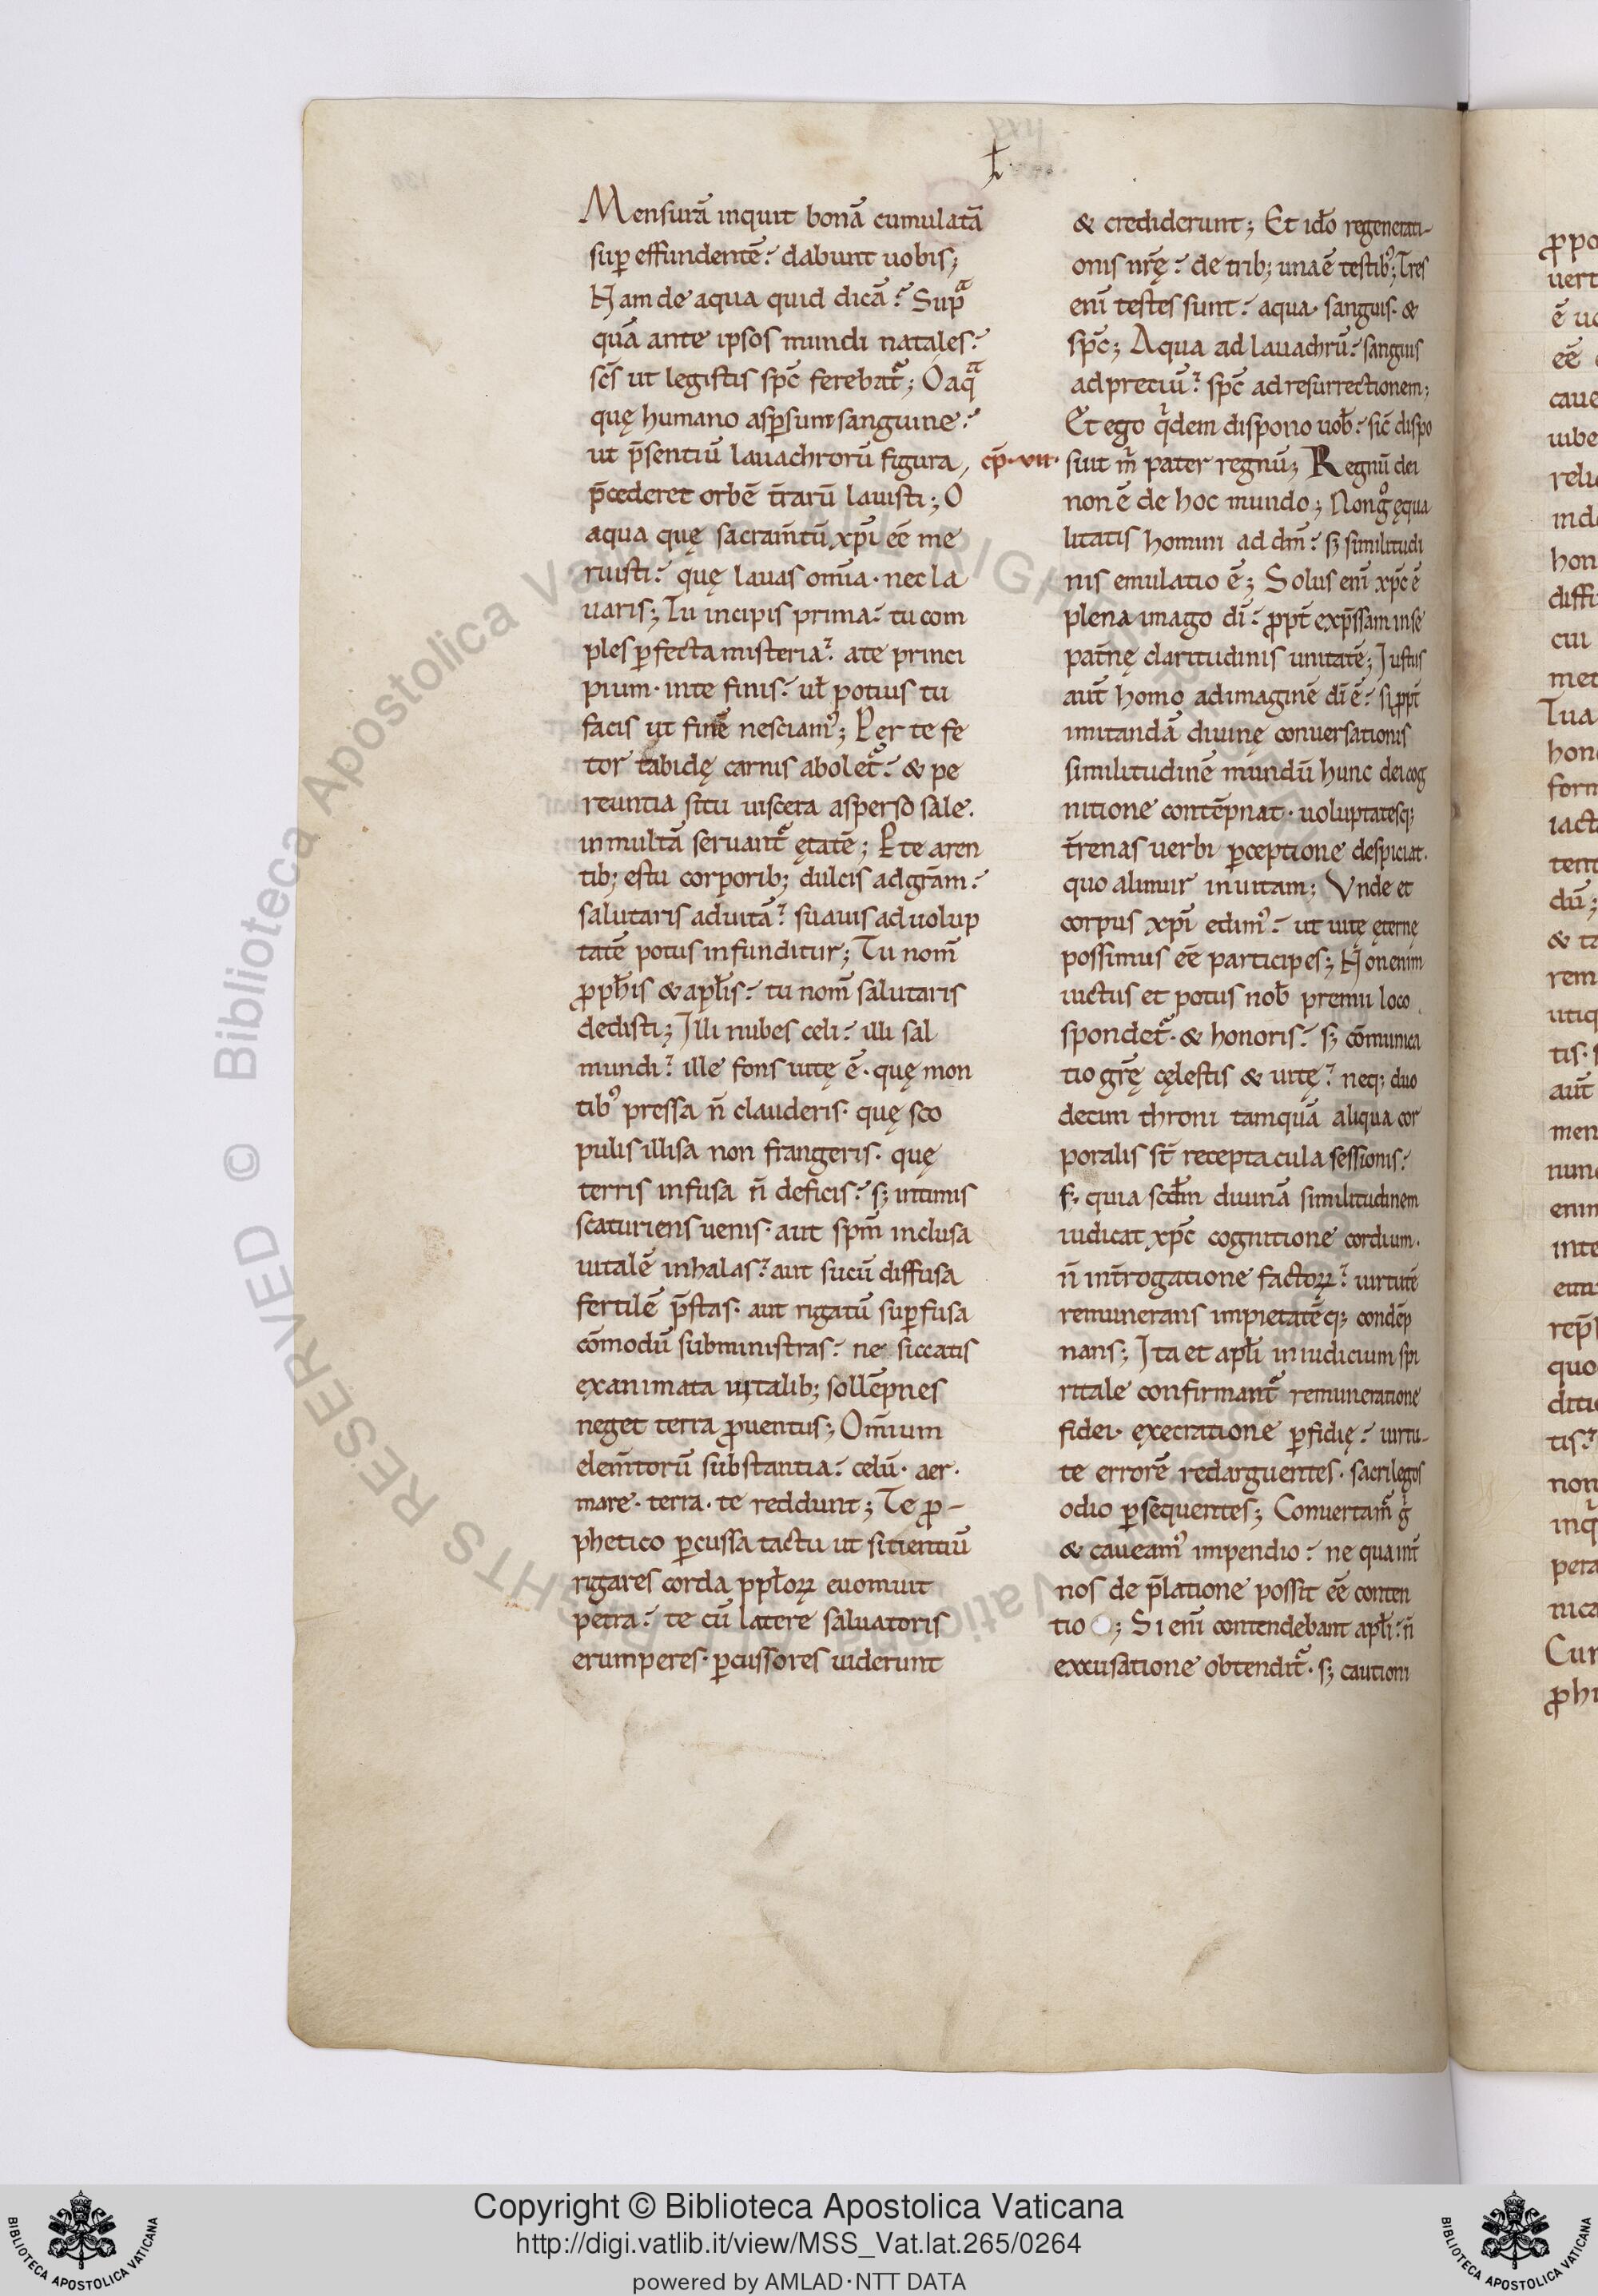 Mensurã inquit bonã cumulatã
suꝑ effundentẽ? dabunt uobis;
Nam de aqua quid dicã? Supᵃ
quã ante ipsos mundi natales?
sc̃s ut legistis sp̃c ferebat᷑; O aqᵃ
quę humano asꝑsum sanguine?
ut p̃sentiũ lauachrorũ figura,
p̃cederet orbẽ t̃rarũ lauisti; O
aqua quę sacram̃tũ xp̃i eẽ me
ruisti? quę lauas om̃ia· nec la
uaris; Tu incipis prima? tu com
ples ꝑfecta misteria? a te princi
pium· in te finis? uł potius tu
facis ut finẽ nesciamꝰ; Per te fe
tor tabidę carnis abolet᷑? & pe
reuntia situ uiscera asperso sale·
in multã seruant᷑ ętatẽ; P te aren
tib; estu corporib; dulcis ad gr̃am?
salutaris ad uitã? suauis ad uolup
tatẽ potus infunditur; Tu nom̃
ꝓph̃is & apłis? tu nom̃ salutaris
dedisti; Illi nubes celi? illi sal
mundi? ille fons uitę ẽ· quę mon
tibꝰ pressa ñ clauderis· quę sco
pulis illisa non frangeris· quę
terris infusa ñ deficis? s; intimis
scaturiens uenis· aut sp̃m inclusa
uitalẽ inhalas? aut sucũ diffusa
fertilẽ p̃stas· aut rigatũ suꝑfusa
cõmodũ subministras? ne siccatis
exanimata uitalib; sollẽpnes
neget terra ꝓuentus; Om̃ium
elem̃torũ substantia? celũ· aer·
mare· terra· te reddunt; Te ꝓ-
phetico ꝑcussa tactu ut sitientiũ
rigares corda ppłoꝝ euomuit
petra? te cũ latere saluatoris
erumperes· ꝑcussores uiderunt
& crediderunt; Et idõ regenerati-
onis nr̃ę? de trib; una ẽ testibꝰ; Tres
eni᷑ testes sunt? aqua· sanguis· &
sp̃c; Aqua ad lauachrũ? sanguis
ad preciũ? sp̃c ad resurrectionem;
Et ego qⁱdem dispono uob̃? sic̃ dispo
cp̃· VII· suit m̃ pater regnũ; Regnũ dei
non ẽ de hoc mundo; Non gͦ ęqua
litatis homini ad dm̃? s; similitudi
nis emulatio ẽ; Solus eni᷑ xp̃c ẽ
plena imago di᷑? ꝓpt̃ exp̃ssam in se
pat̃nę claritudinis unitatẽ; Iustus
aut̃ homo ad imaginẽ di᷑ ẽ? si ꝓpt̃
imitandã diuinę conuersationis
similitudinẽ mundũ hunc dei cog
nitione contẽpnat· uoluptatesq;
t̃renas uerbi ꝑceptione despiciat·
quo alimur in uitam; Vnde et
corpus xp̃i edimꝰ? ut uitę ęternę
possimus eẽ participes; Non enim
uictus et potus nob̃ premii loco
spondet᷑· & honoris? s; cõmunica
tio gr̃ę cęlestis & uitę? neq; duo
decim throni tamquã aliqua cor
poralis st̃ receptacula sessionis?
s; quia scđm diuinã similitudinem
iudicat xp̃c cognitione cordium·
ñ int̃rogatione factoꝝ? uirtutẽ
remunerans impietatẽq; condẽp
nans; Ita et apłi in iudicium spi
ritale confirmant᷑ remuneratione
fidei· execratione ꝑfidię? uirtu-
te errorẽ redarguentes· sacrilegos
odio ꝑsequentes; Conuertam᷑ gͥ
& caueamꝰ impendio? ne qua int̃
nos de p̃latione possit eẽ conten
tio; Si eni᷑ contendebant apłi? ñ
excusatione obtendit᷑· s; cautioni
Copyright © Biblioteca Apostolica Vaticana
http://digi.vatlib.it/view/MSS_Vat.lat.265/0264
powered by AMLAD·NTT DATA
BIBLIOTECA APOSTOLICA VATICANA
BIBLIOTECA APOSTOLICA VATICANA